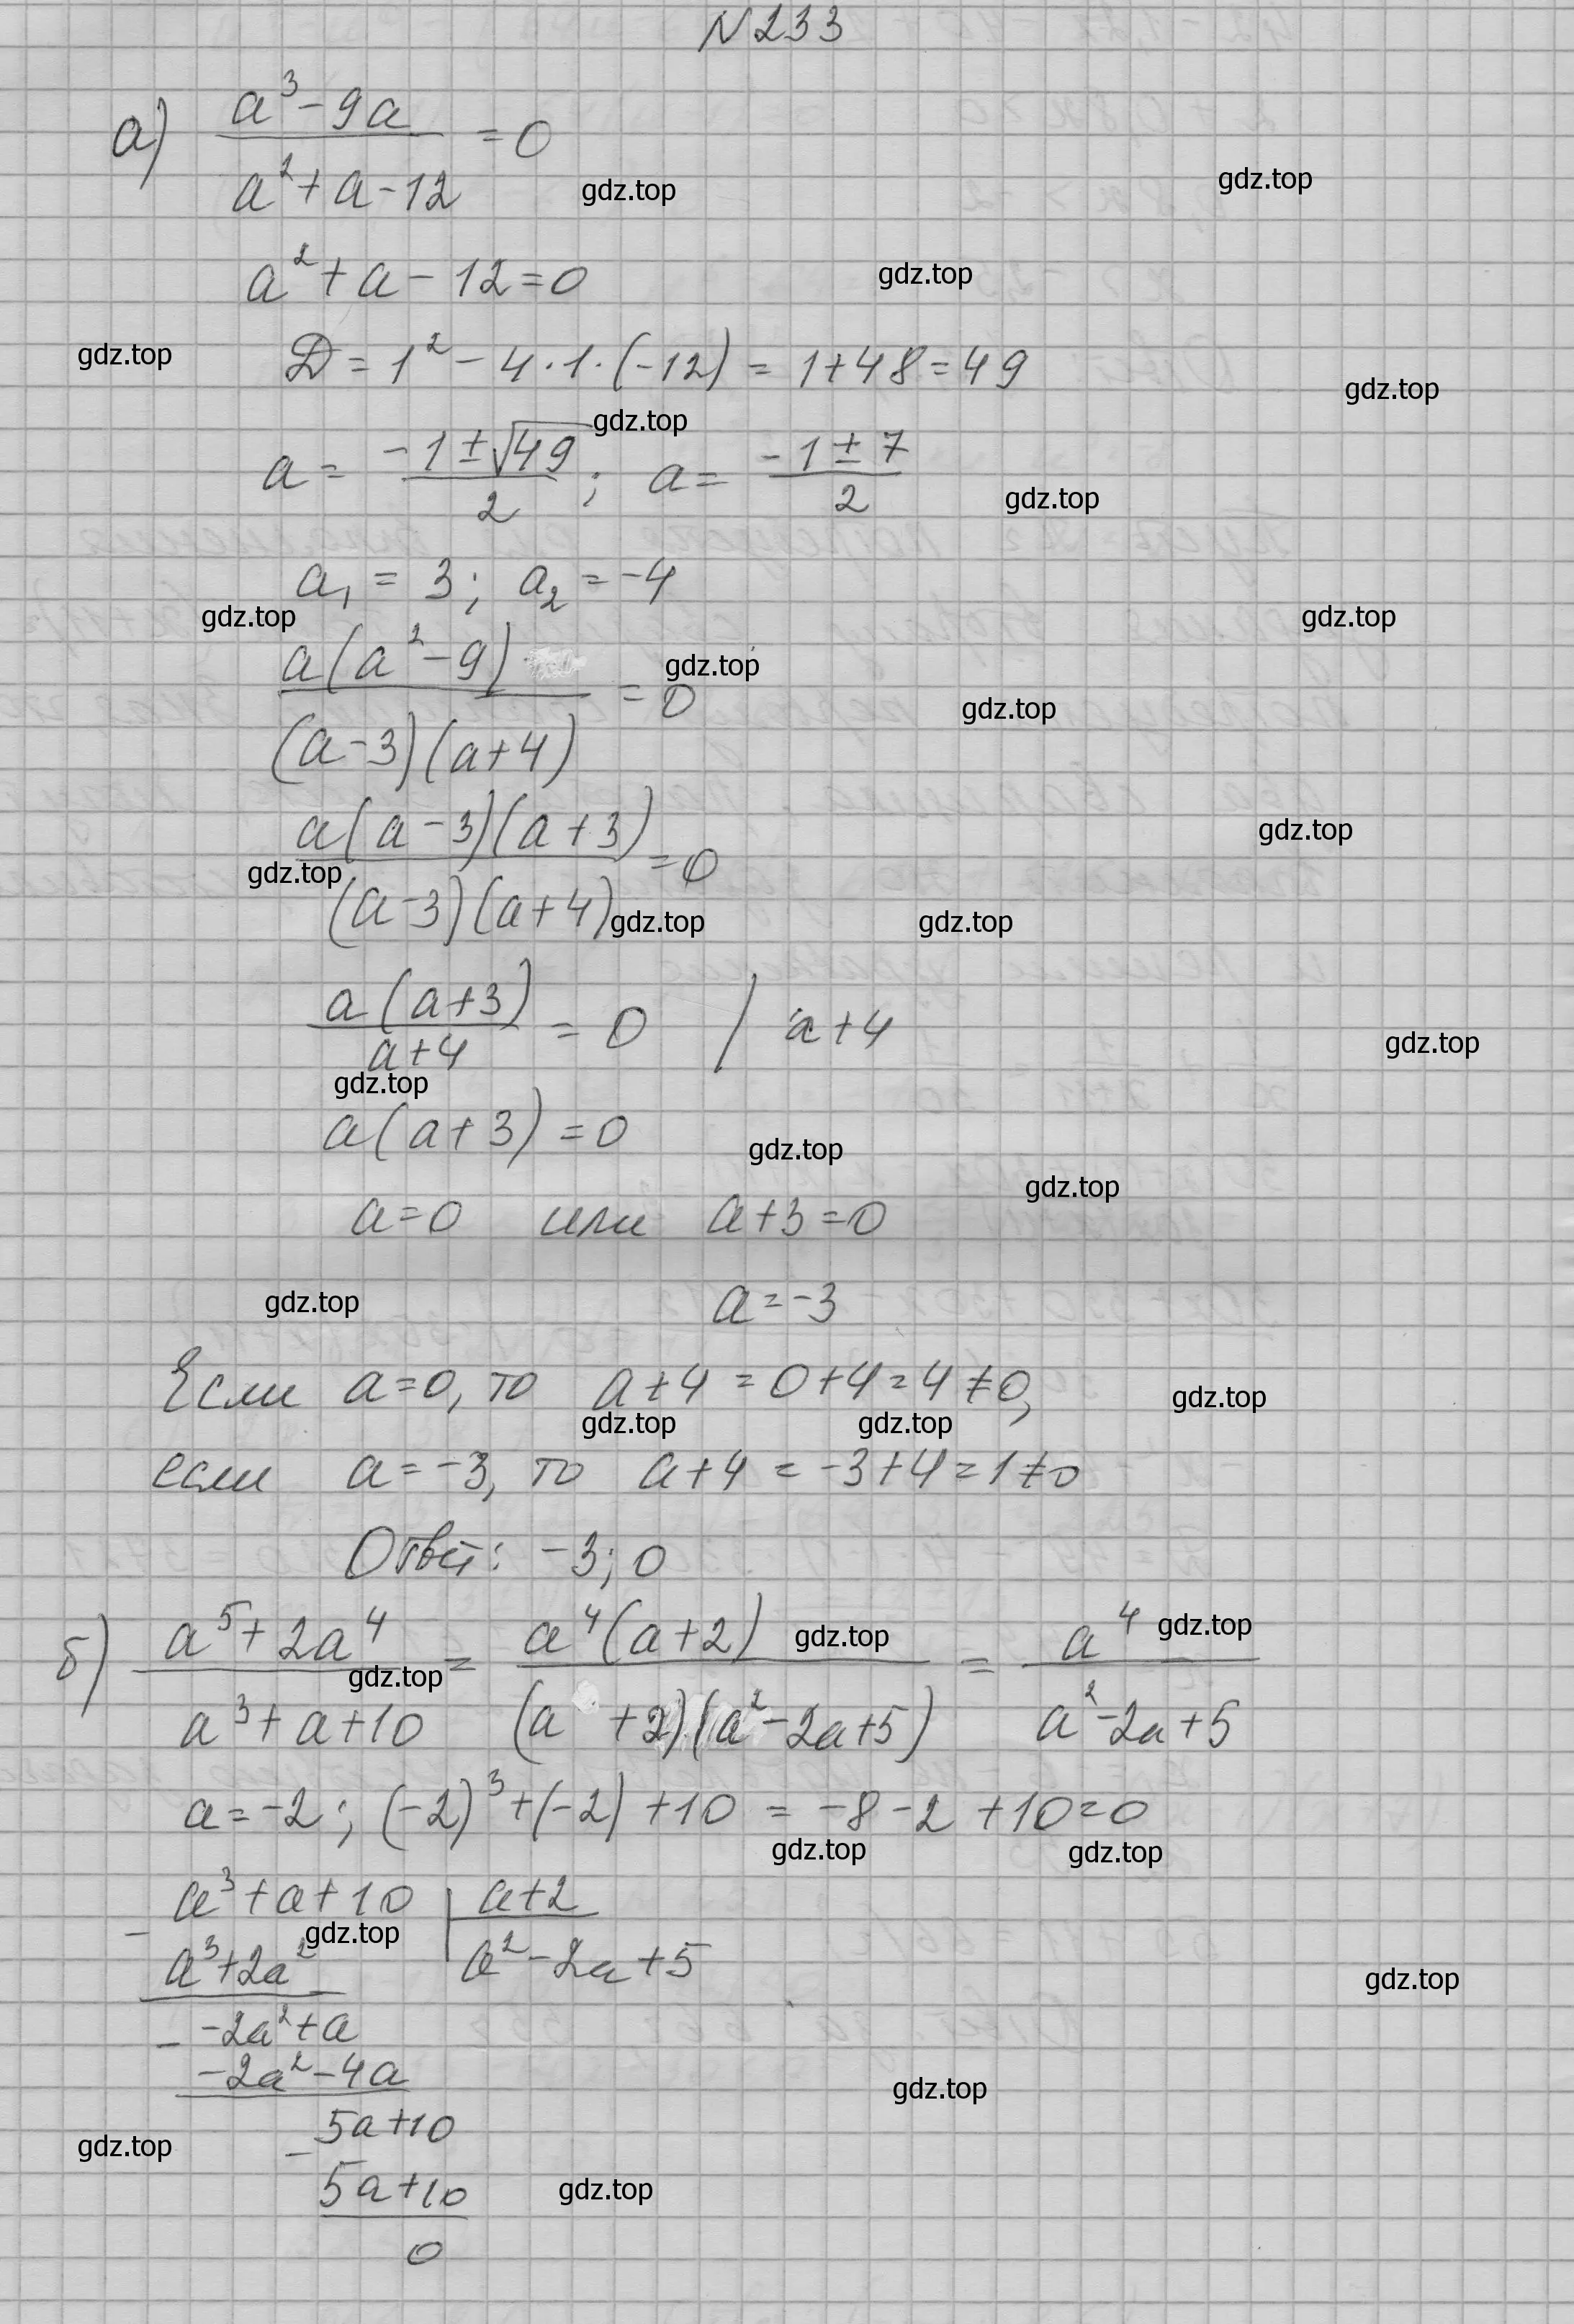 N 233
а) (a³ - 9a)/(a² + a - 12) = 0
gdz.top gdz.top
a² + a - 12 = 0 gdz.top
gdz.top D = 1² - 4·1·(-12) = 1+48 = 49 gdz.top
gdz.top
a = (-1 ± √49)/2 ; a = (-1 ± 7)/2 gdz.top
a₁ = 3 ; a₂ = -4
gdz.top gdz.top
a(a² - 9)/((a - 3)(a + 4)) = 0 gdz.top gdz.top
a(a - 3)(a + 3)/((a - 3)(a + 4)) = 0 gdz.top
gdz.top gdz.top gdz.top
a(a+3)/(a+4) = 0 / a+4 gdz.top
gdz.top
a(a + 3) = 0 gdz.top
gdz.top
a = 0 или a + 3 = 0
gdz.top a = -3
Если a = 0, то a + 4 = 0 + 4 = 4 ≠ 0, gdz.top
gdz.top gdz.top
если a = -3, то a + 4 = -3 + 4 = 1 ≠ 0
Ответ: -3; 0
б) (a⁵ + 2a⁴)/(a³ + a + 10) = a⁴(a+2)/((a + 2)(a² - 2a + 5)) = a⁴/(a² - 2a + 5)
gdz.top gdz.top gdz.top
a = -2 ; (-2)³ + (-2) + 10 = -8 - 2 + 10 = 0
gdz.top gdz.top
a³ + a + 10 | a+2
gdz.top
- a³ + 2a² | a² - 2a + 5
gdz.top
- -2a² + a
-2a² - 4a
gdz.top
- 5a + 10
gdz.top
5a + 10
gdz.top
0